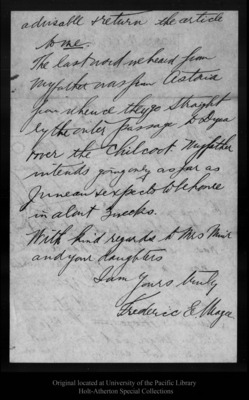 advisable & return the article
to me.
The last word we heard from
my father was from Astoria
from whence they go straight
by the outer passage to Dyea
over the Chilcoot. My father
intends going only as far as
Juneau & expects to be home
in about 3 weeks.
With kind regards to Mrs Muir
and your daughters
I am
Yours truly
Frederic E Magee
Original located at University of the Pacific Library
Holt-Atherton Special Collections